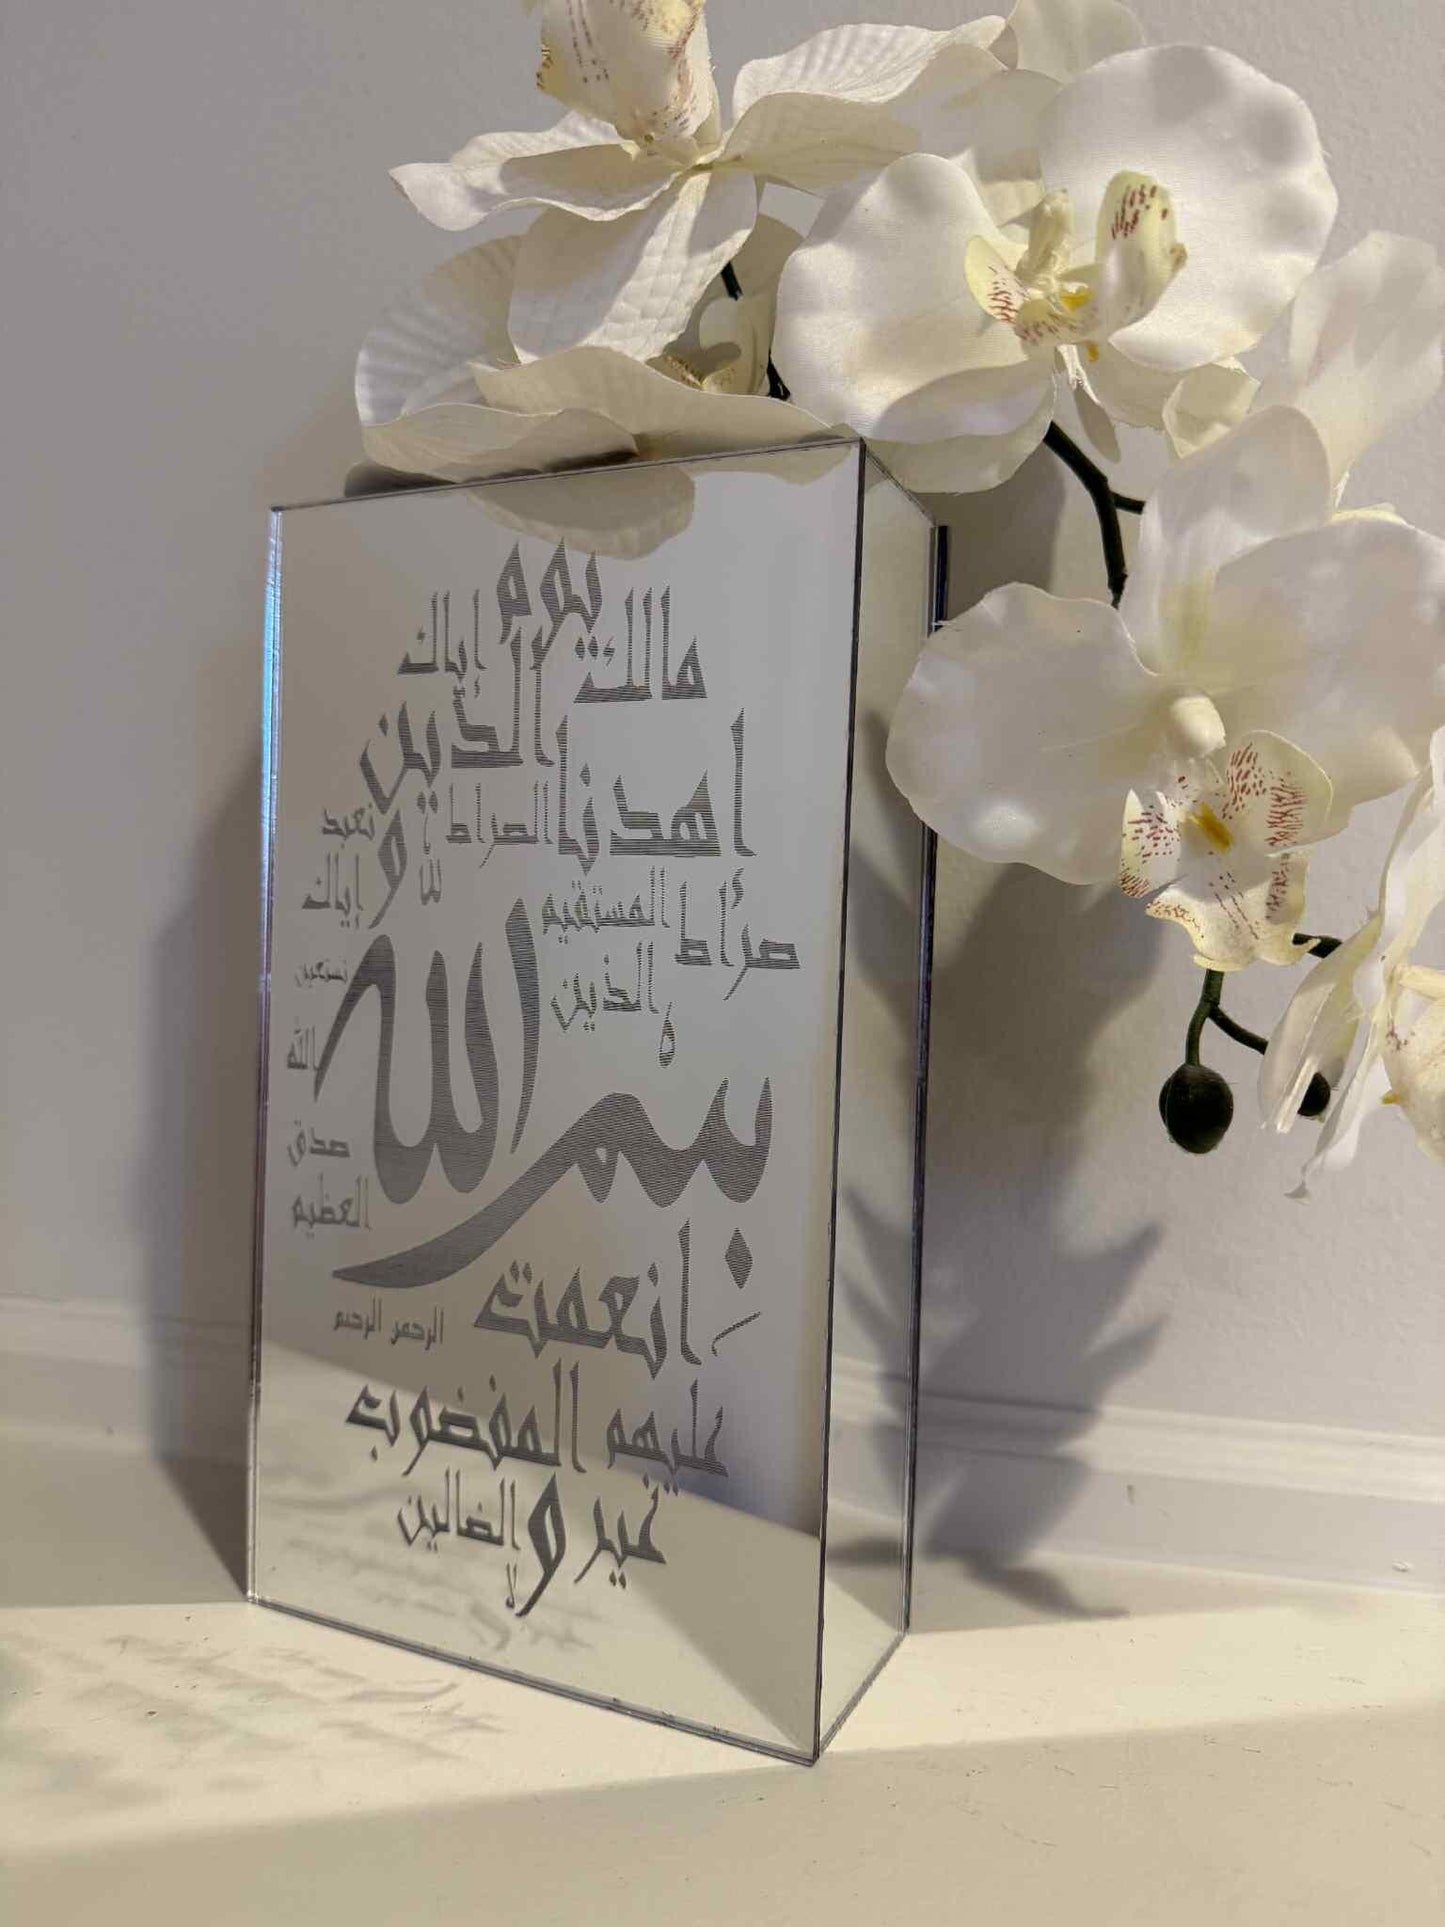 يوم
مالك
إياك
الدين
اهدنا
الصراط
نعبد
و
إياك
لله
المستقيم
صراط
الذين
نستعين
الله
بسم
الله
صدق
العظيم
الرحمن الرحيم
انعمت
عليهم
المغضوب
غير
و
الضالين
لا